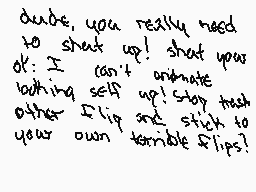 dude, you really need
to shut up! shut your
ol: I can't animate
lothing self up! stop trash
other flip and stick to
your own terrible flips!